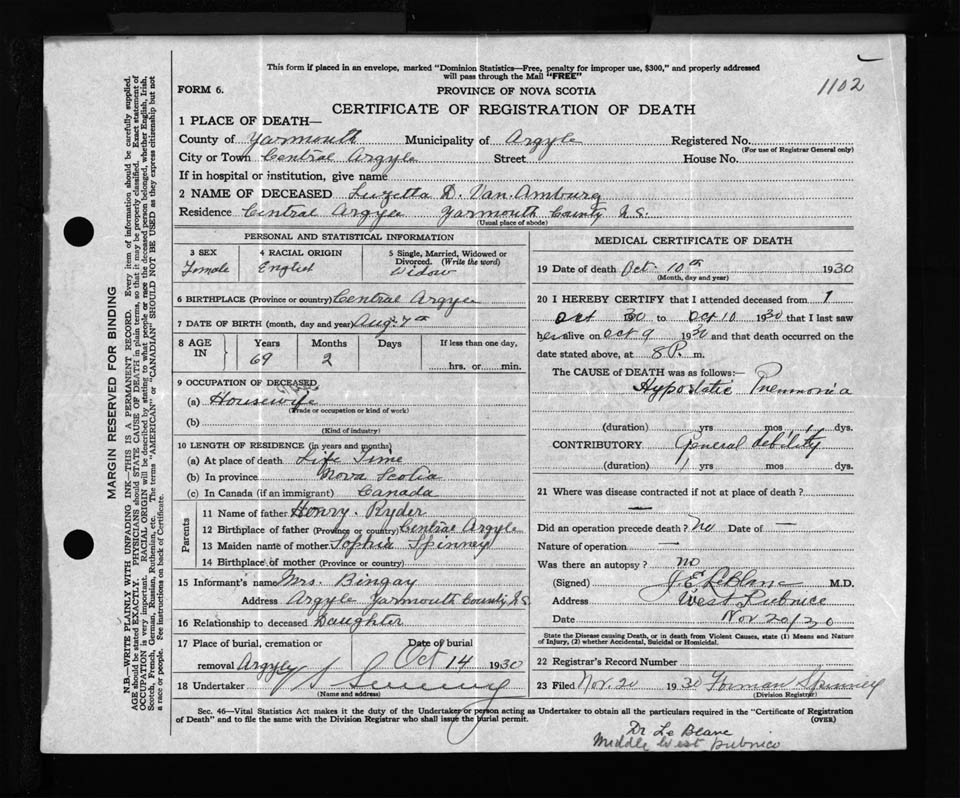 This form if placed in an envelope, marked "Dominion Statistics—Free, penalty for improper use, $300," and properly addressed
will pass through the Mail "FREE"
1102
FORM 6.
PROVINCE OF NOVA SCOTIA
CERTIFICATE OF REGISTRATION OF DEATH
1 PLACE OF DEATH—
County of Yarmouth Municipality of Argyle Registered No.
(For use of Registrar General only)
City or Town Central Argyle Street House No.
If in hospital or institution, give name
2 NAME OF DECEASED Luzetta D. Van.Amburg
Residence Central Argyle Yarmouth County N.S.
(Usual place of abode)
PERSONAL AND STATISTICAL INFORMATION
3 SEX 4 RACIAL ORIGIN 5 Single, Married, Widowed or
Divorced. (Write the word)
Female English Widow
6 BIRTHPLACE (Province or country) Central Argyle
7 DATE OF BIRTH (month, day and year) Aug. 7th
8 AGE IN Years Months Days If less than one day,
69 2 hrs. or min.
9 OCCUPATION OF DECEASED
(a) Housewife
(Trade or occupation or kind of work)
(b)
(Kind of industry)
10 LENGTH OF RESIDENCE (in years and months)
(a) At place of death Life Time
(b) In province Nova Scotia
(c) In Canada (if an immigrant) Canada
Parents
11 Name of father Henry. Ryder
12 Birthplace of father (Province or country) Central Argyle
13 Maiden name of mother Sophia Spinney
14 Birthplace of mother (Province or country)
15 Informant's name Mrs. Bingay
Address Argyle Yarmouth County N.S.
16 Relationship to deceased Daughter
17 Place of burial, cremation or Date of burial
removal Argyle Oct 14 1930
18 Undertaker
(Name and address)
MEDICAL CERTIFICATE OF DEATH
19 Date of death Oct. 10th 1930
(Month, day and year)
20 I HEREBY CERTIFY that I attended deceased from 1
Oct 1930 to Oct 10 1930 that I last saw
her alive on Oct 9 1930 and that death occurred on the
date stated above, at 8 P. m.
The CAUSE of DEATH was as follows:—
Hypostatic Pneumonia
(duration) yrs mos dys.
CONTRIBUTORY General debility
(duration) 1 yrs mos dys.
21 Where was disease contracted if not at place of death?
—
Did an operation precede death? no Date of —
Nature of operation —
Was there an autopsy? no
(Signed) J.E. LeBlanc M.D.
Address West Pubnico
Date Nov 20/30
State the Disease causing Death, or in death from Violent Causes, state (1) Means and Nature
of Injury, (2) whether Accidental, Suicidal or Homicidal.
22 Registrar's Record Number
23 Filed Nov. 20 1930 Forman Spinney
(Division Registrar)
Sec. 46—Vital Statistics Act makes it the duty of the Undertaker or person acting as Undertaker to obtain all the particulars required in the "Certificate of Registration
of Death" and to file the same with the Division Registrar who shall issue the burial permit. (OVER)
Dr Le Blanc
Middle West Pubnico
MARGIN RESERVED FOR BINDING
N.B.—WRITE PLAINLY WITH UNFADING INK—THIS IS A PERMANENT RECORD. Every item of information should be carefully supplied.
AGE should be stated EXACTLY. PHYSICIANS should STATE CAUSE OF DEATH in plain terms, so that it may be properly classified. Exact statement of
OCCUPATION is very important. RACIAL ORIGIN will be described by stating to what people or race the deceased person belonged, whether English, Irish,
Scotch, French, German, Russian, Ruthenian, etc. The terms "AMERICAN" or "CANADIAN" SHOULD NOT BE USED as they express citizenship but not
a race or people. See instructions on back of Certificate.